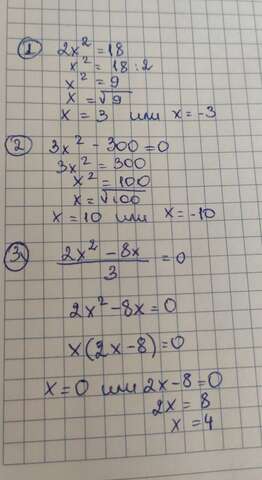 1 2x² = 18
x² = 18 : 2
x² = 9
x = √9
x = 3 или x = -3
2 3x² - 300 = 0
3x² = 300
x² = 100
x = √100
x = 10 или x = -10
3. (2x² - 8x)/3 = 0
2x² - 8x = 0
x(2x - 8) = 0
x = 0 или 2x - 8 = 0
2x = 8
x = 4